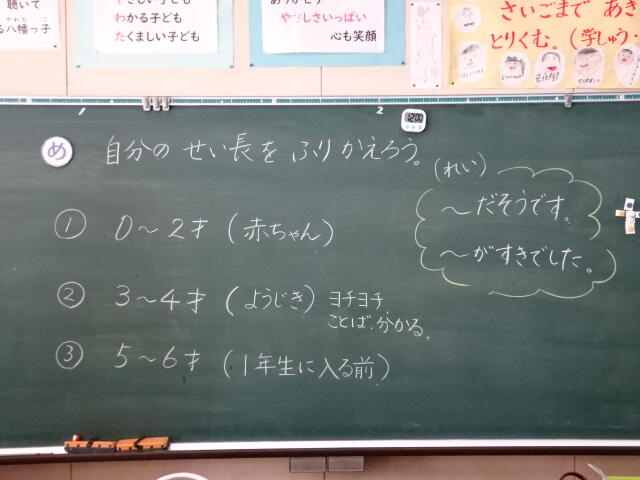 聴いて
る八幡っ子
やさしい子ども
わかる子ども
たくましい子ども
やさしさいっぱい
心も笑顔
さいごまで あき
とりくむ。(学しゅう
1
2
12:00
め 自分の せい長を ふりかえろう。
(れい)
~だそうです。
~がすきでした。
① 0~2才 (赤ちゃん)
② 3~4才 (ようじき) ヨチヨチ
ことば.分かる。
③ 5~6才 (1年生に入る前)